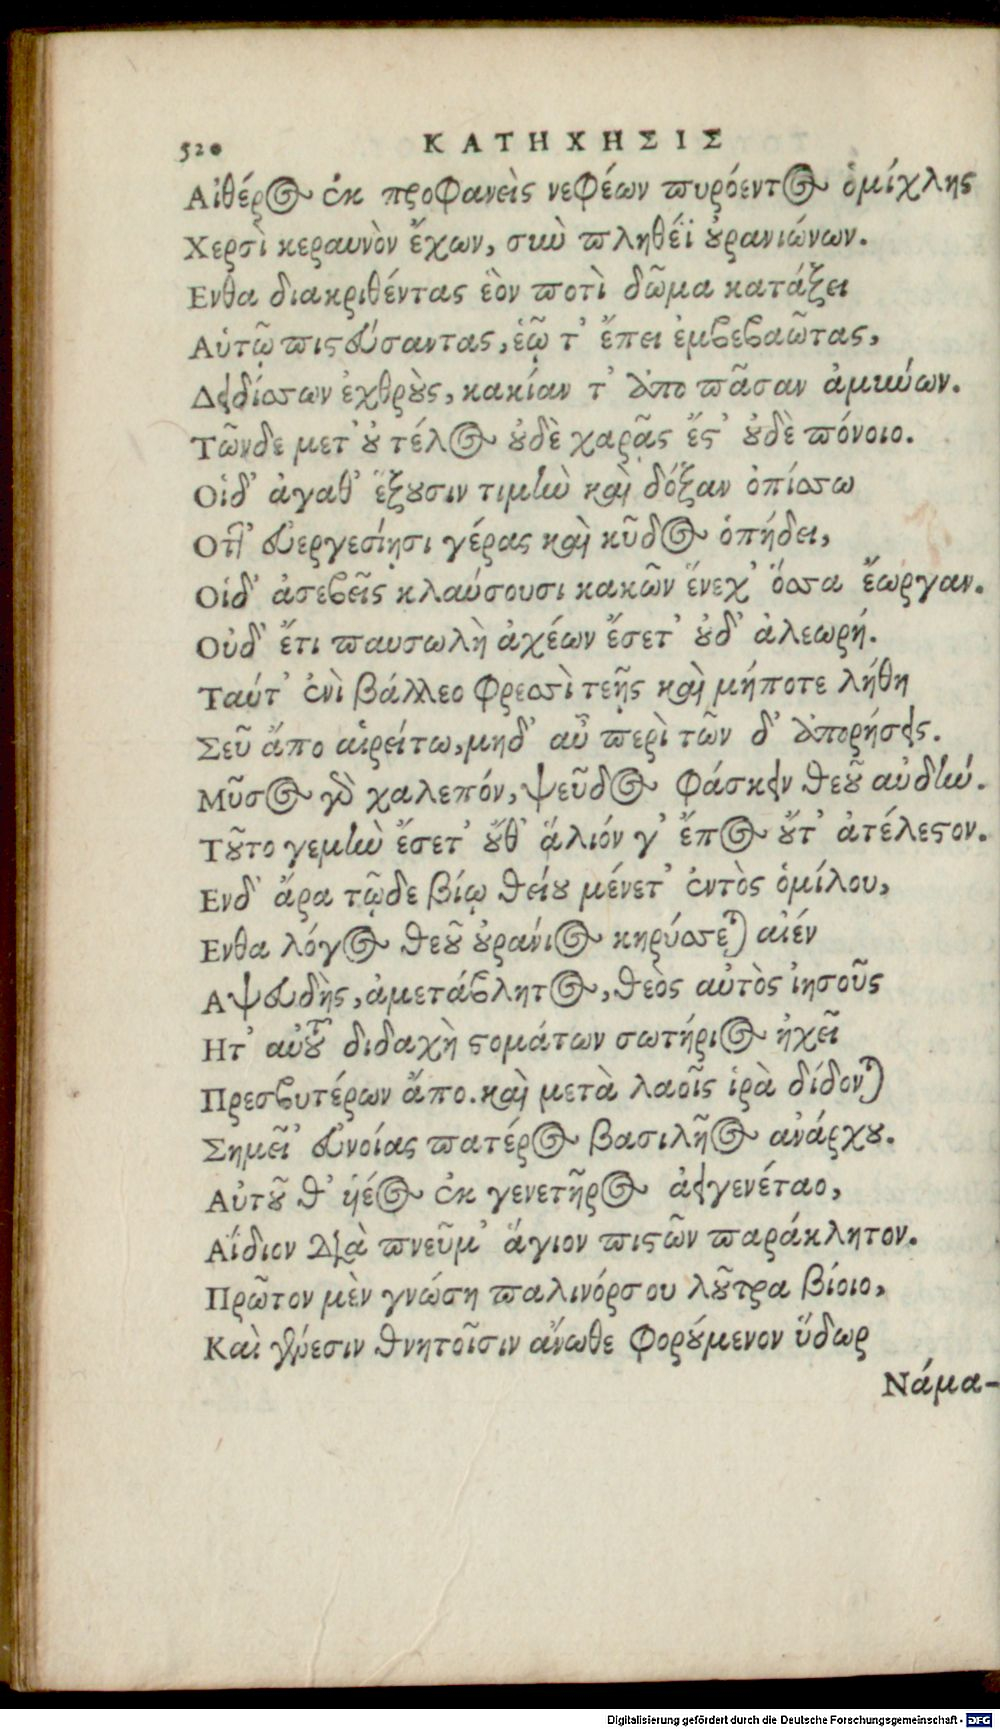 520 ΚΑΤΗΧΗΣΙΣ
Αἰθέρος ἐκ προφανεὶς νεφέων πυρόεντος ὀμίχλης
Χερσὶ κεραυνὸν ἔχων, σὺν πληθέϊ οὐρανιώνων.
Ενθα διακριθέντας ἑὸν ποτὶ δῶμα κατάξει
Αὐτῷ πιστεύσαντας, ἑῷ τ' ἔπει ἐμβεβαῶτας,
Δειδίσσων ἐχθροὺς, κακίαν τ' ἀπο πᾶσαν ἀμύνων.
Τῶνδε μετ' οὐ τέλος οὐδὲ χαρᾶς ἔστ' οὐδὲ πόνοιο.
Οἱδ' ἀγαθ' ἕξουσιν τιμὴν καὶ δόξαν ὀπίσσω
Οττι' εὐεργεσίῃσι γέρας καὶ κῦδος ὀπήδει,
Οἱδ' ἀσεβεῖς κλαύσουσι κακῶν ἕνεχ' ὅσσα ἔωργαν.
Οὐδ' ἔτι παυσωλὴ ἀχέων ἔσετ' οὐδ' ἀλεωρή.
Ταύτ' ἐνὶ βάλλεο φρεσσὶ τεῇς καὶ μήποτε λήθη
Σεῦ ἄπο αἱρείτω, μηδ' αὖ περὶ τῶν δ' ἀπορήσεις.
Μῦσος γὰρ χαλεπόν, ψεῦδος φάσκειν θεοῦ αὐδήν.
Τοῦτο γεμὴν ἔσετ' οὔθ' ἅλιόν γ' ἔπος οὔτ' ἀτέλεστον.
Ενδ' ἄρα τῷδε βίῳ θείου μένετ' ἐντὸς ὁμίλου,
Ενθα λόγος θεοῦ οὐράνιος κηρύσσεται αἰέν
Αψευδὴς, ἀμετάβλητος, θεὸς αὐτὸς ἰησοῦς
Ητ' αὐτοῦ διδαχὴ στομάτων σωτήριος ἠχεῖ
Πρεσβυτέρων ἄπο. καὶ μετὰ λαοῖς ἱρὰ δίδονται
Σημεῖ' εὐνοίας πατέρος βασιλῆος ἀνάρχου.
Αὐτοῦ θ' ὑιέος ἐκ γενετῆρος ἀειγενέταο,
Αΐδιον διὰ πνεῦμ' ἅγιον πιστῶν παράκλητον.
Πρῶτον μὲν γνώσῃ παλινόρσου λοῦτρα βίοιο,
Καὶ γένεσιν θνητοῖσιν ἄνωθε φορούμενον ὕδωρ
Νάμα-
Digitalisierung gefördert durch die Deutsche Forschungsgemeinschaft - DFG